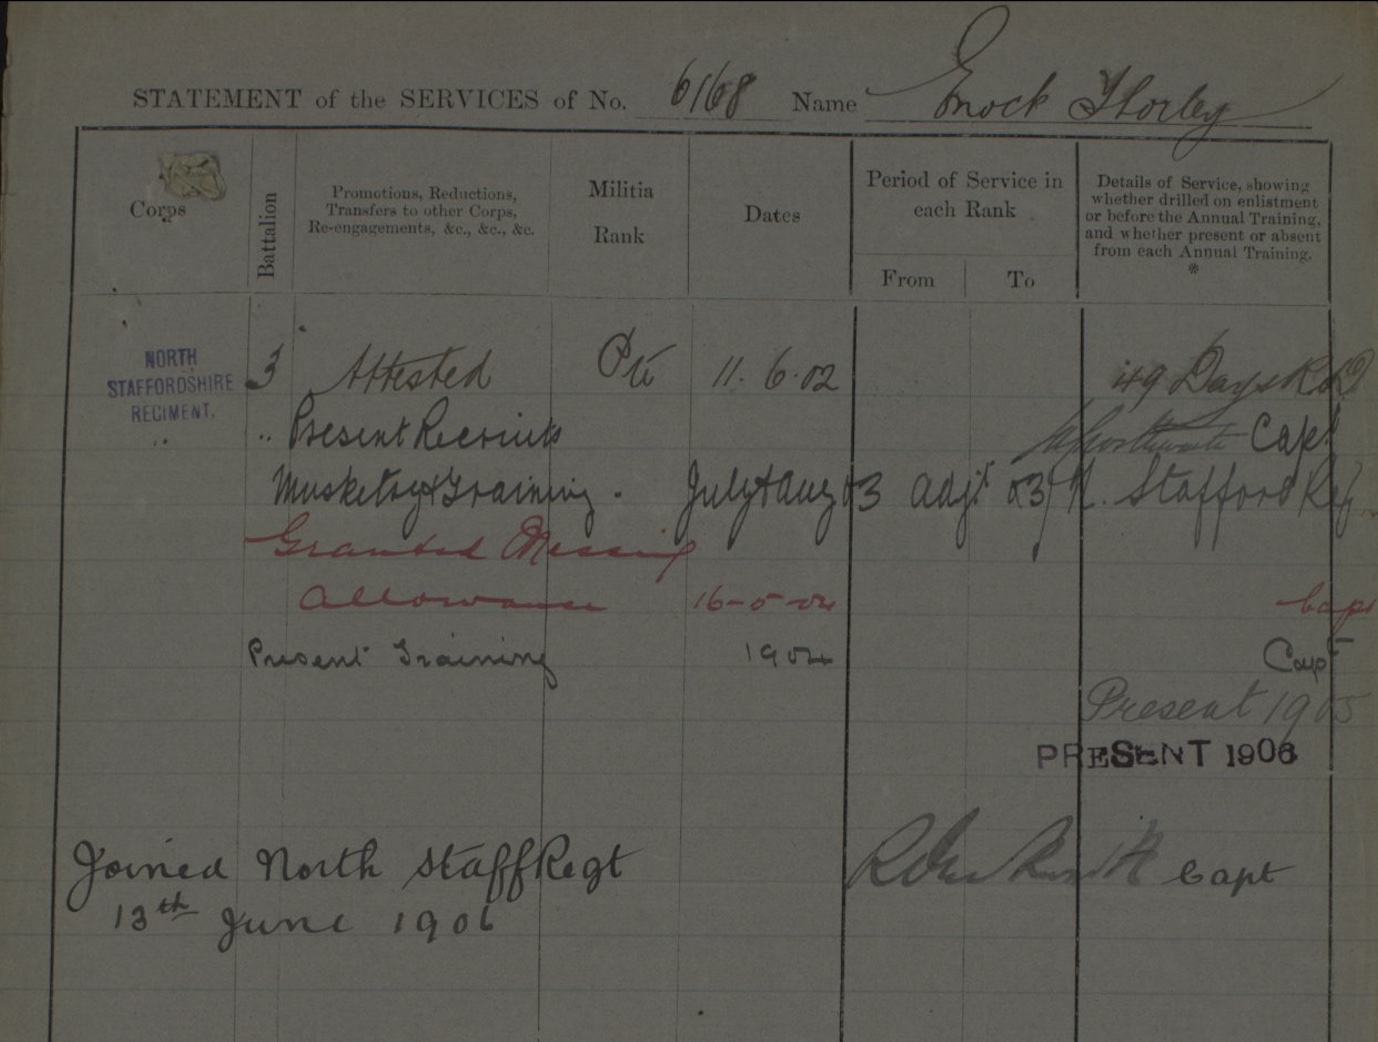 STATEMENT of the SERVICES of No. 6168 Name Enock Thorley
Corps
Battalion
Promotions, Reductions,
Transfers to other Corps,
Re-engagements, &c., &c., &c.
Militia
Rank
Dates
Period of Service in
each Rank
From To
Details of Service, showing
whether drilled on enlistment
or before the Annual Training,
and whether present or absent
from each Annual Training.
*
NORTH
STAFFORDSHIRE
REGIMENT.
3 Attested Pte 11.6.02 49 Days R.D
" " Present Recruits Capt
Musketry & Training. July & Aug 03 Adjt 3/N. Stafford Reg
Granted Messing
Allowance 16-5-04 Capt
Present Training 1904 Capt
Present 1905
PRESENT 1906
Joined North Staff Regt Capt
13th June 1906